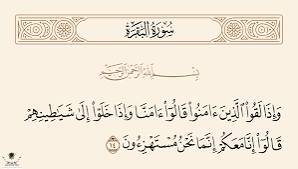 سُورَةُ البَقَرَةِ
بِسْمِ اللَّهِ الرَّحْمَٰنِ الرَّحِيمِ
وَإِذَا لَقُوا۟ ٱلَّذِينَ ءَامَنُوا۟ قَالُوٓا۟ ءَامَنَّا وَإِذَا خَلَوْا۟ إِلَىٰ شَيَٰطِينِهِمْ
قَالُوٓا۟ إِنَّا مَعَكُمْ إِنَّمَا نَحْنُ مُسْتَهْزِءُونَ ١٤